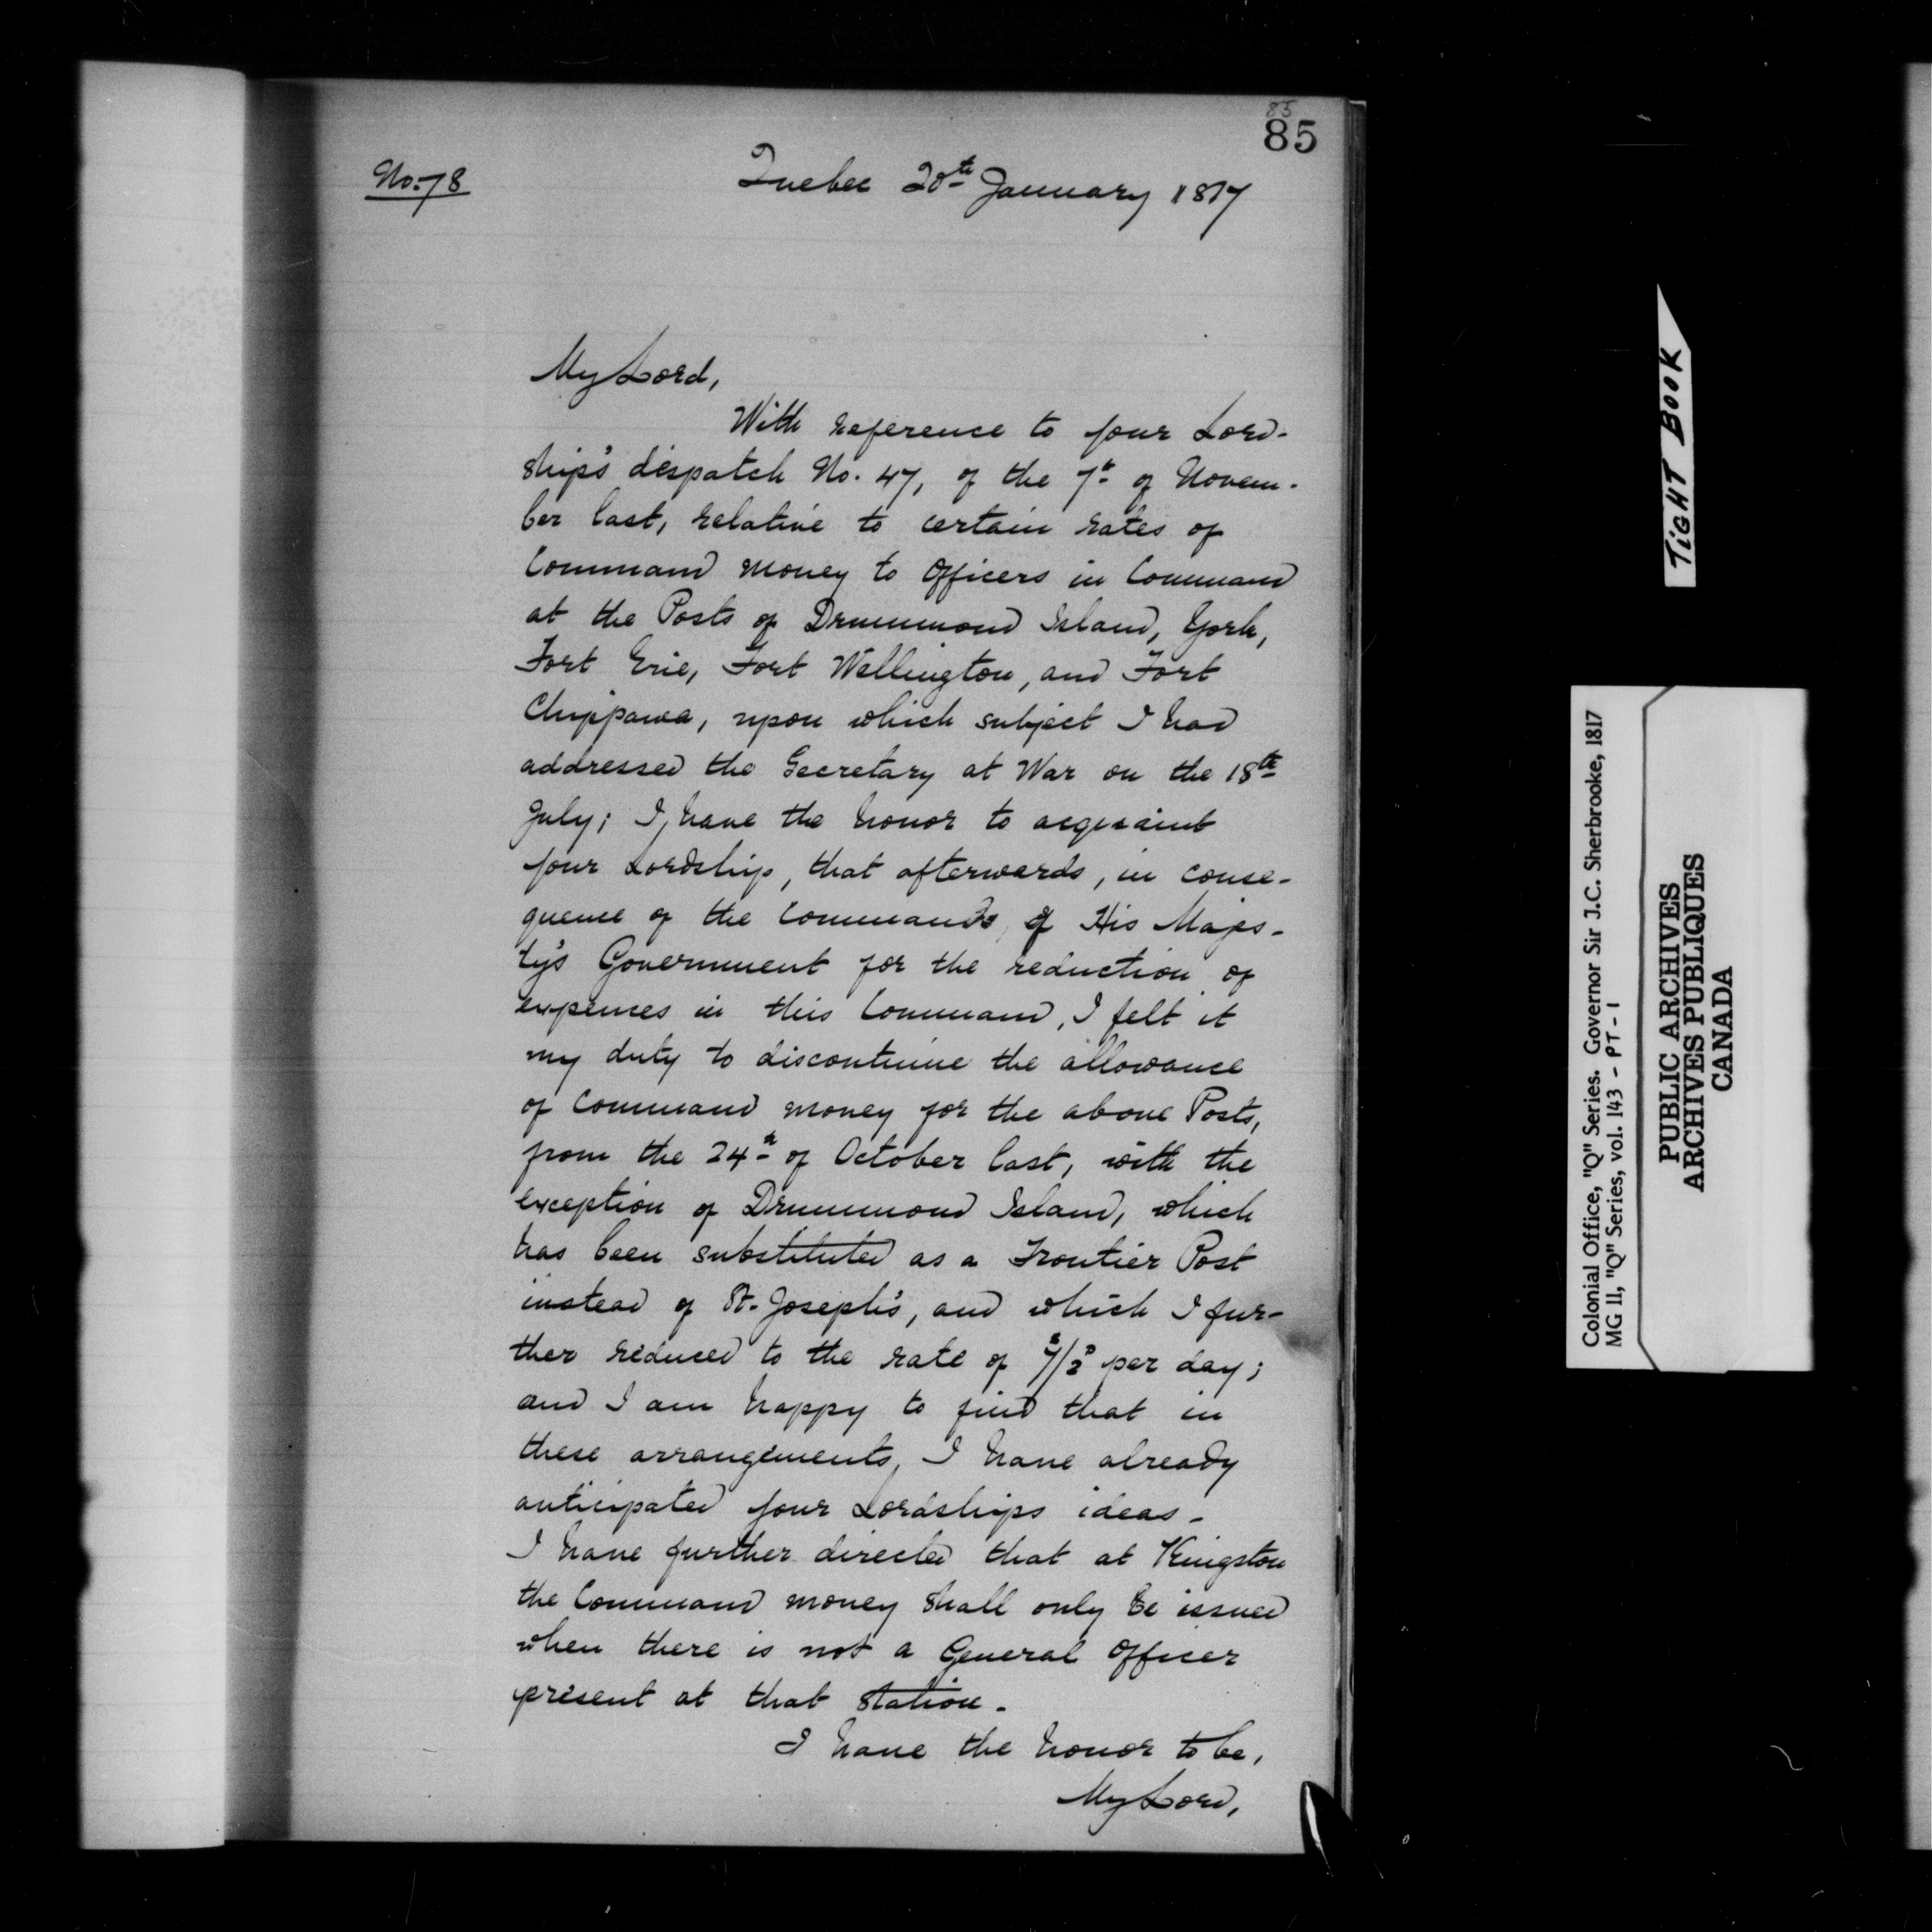 85
85
No. 78
Quebec 20th January 1817
My Lord,
With reference to your Lord-
ship's dispatch No. 47, of the 7th of Novem-
ber last, relative to certain rates of
Command money to Officers in Command
at the Posts of Drummond Island, York,
Fort Erie, Fort Wellington, and Fort
Chippawa, upon which subject I had
addressed the Secretary at War on the 18th
July; I have the honor to acquaint
your Lordship, that afterwards, in conse-
quence of the Commands of His Majes-
ty's Government for the reduction of
expences in this Command, I felt it
my duty to discontinue the allowance
of Command money for the above Posts,
from the 24th of October last, with the
exception of Drummond Island, which
has been substituted as a Frontier Post
instead of St. Joseph's, and which I fur-
ther reduced to the rate of per day;
and I am happy to find that in
these arrangements, I have already
anticipated your Lordships ideas -
I have further directed that at Kingston
the Command money shall only be issued
when there is not a General Officer
present at that station -
I have the honor to be,
My Lord,
TIGHT BOOK
Colonial Office, "Q" Series. Governor Sir J.C. Sherbrooke, 1817
MG 11, "Q" Series, vol. 143 - PT - 1
PUBLIC ARCHIVES
ARCHIVES PUBLIQUES
CANADA